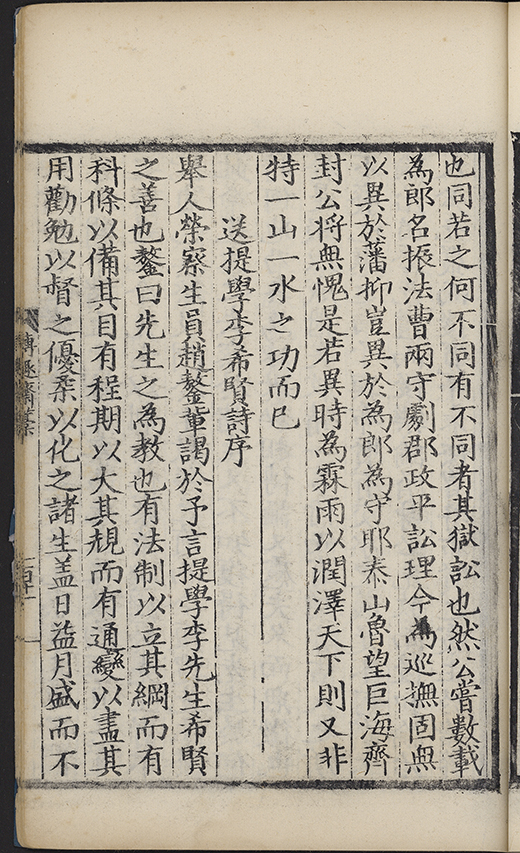 也同若之何不同有不同者其獄訟也然公嘗數載
為郎名振法曹兩守劇郡政平訟理今為巡撫固無
以異於藩抑豈異於為郎為守耶泰山魯望巨海齊
封公将無愧是若異時為霖雨以潤澤天下則又非
特一山一水之功而已
送提學李希賢詩序
舉人榮察生員趙鏊軰謁於予言提學李先生希賢
之善也鏊曰先生之為教也有法制以立其綱而有
科條以備其目有程期以大其規而有通變以盡其
用勸勉以督之優柔以化之諸生盖日益月盛而不